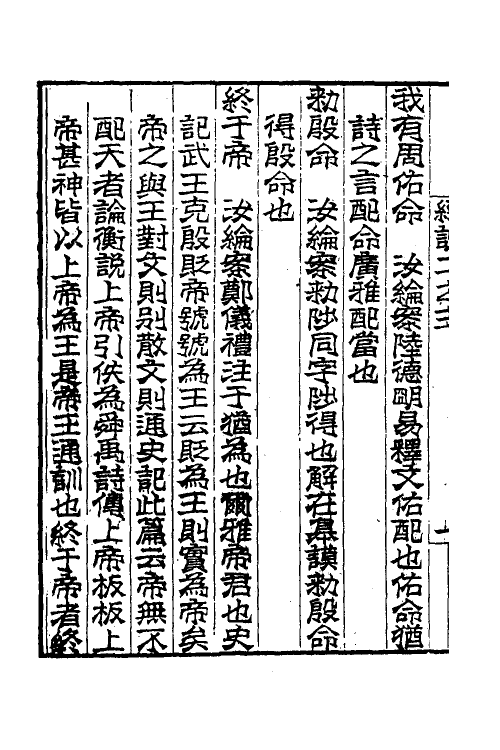 我有周佑命　汝綸案陸德明易釋文佑配也佑命猶
詩之言配命廣雅配當也
勑殷命　汝綸案勑陟同字陟得也解在臯謨勑殷命
得殷命也
終于帝　汝綸案鄭儀禮注于猶為也爾雅帝君也史
記武王克殷貶帝號號為王云貶為王則實為帝矣
帝之與王對文則別散文則通史記此篇云帝無不
配天者論衡說上帝引佚為舜禹詩傳上帝板板上
帝甚神皆以上帝為王是帝王通訓也終于帝者終